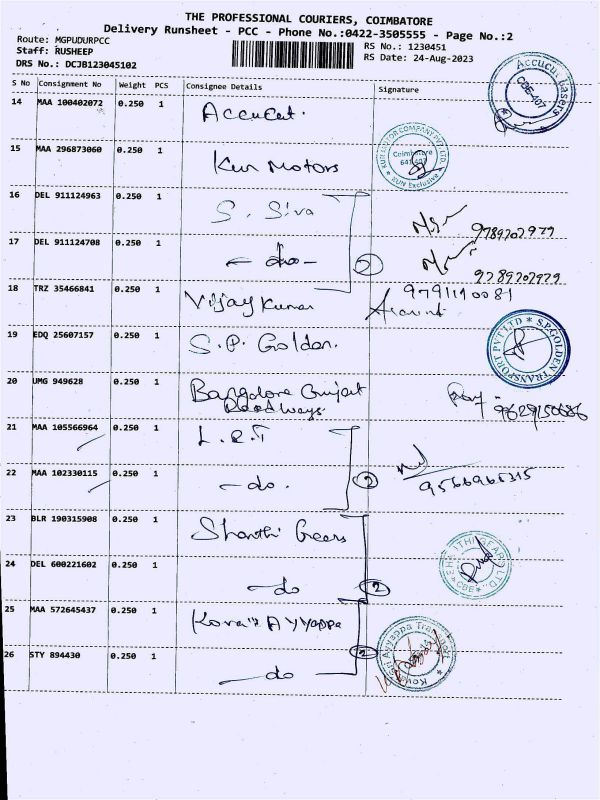 THE PROFESSIONAL COURIERS, COIMBATORE
Delivery Runsheet - PCC - Phone No.:0422-3505555 - Page No.:2
Route: MGPUDURPCC
RS No.: 1230451
Staff: RUSHEEP
RS Date: 24-Aug-2023
DRS No.: DCJB123045102
S No Consignment No Weight PCS Consignee Details Signature
Accucut Lasers
CBE-407
14 MAA 100402072 0.250 1 Accucut.
15 MAA 296873060 0.250 1 Kun Motors
KUN MOTOR COMPANY PVT. LTD.
Coimbatore
641 407
KUN Exclusive
16 DEL 911124963 0.250 1 S. Siva
9789707979
17 DEL 911124708 0.250 1 - do - 2
9789707979
18 TRZ 35466841 0.250 1 Vijay Kumar
9791140081
19 EDQ 25607157 0.250 1 S.P. Golden.
S.P.GOLDEN TRANSPORT PVT LTD
20 UMG 949628 0.250 1 Bangalore Gujarat
Roadways
9629150686
21 MAA 105566964 0.250 1 L.R.T
22 MAA 102330115 0.250 1 - do. 2
9566965315
23 BLR 190315908 0.250 1 Shanthi Gears
24 DEL 600221602 0.250 1 - do 2
SHANTHI GEARS LTD.
CBE
25 MAA 572645437 0.250 1 Kovai Ayyappa
26 STY 894430 0.250 1 - do 2
Kovai Sri Ayyappa Transport